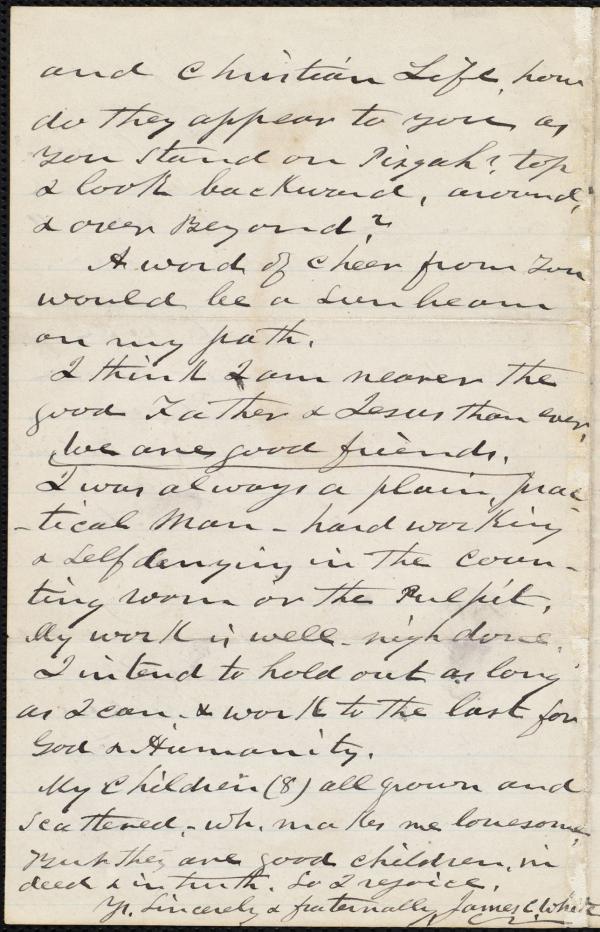 and Christian Life, how
do they appear to you, as
you stand on Pisgah's top
& look backward, around,
& over Beyond?
A word of cheer from you
would be a sunbeam
on my path.
I think I am nearer the
good Father & Jesus than ever,
We are good friends.
I was always a plain, prac-
-tical man - hard working
& self denying in the coun-
ting room or the Pulpit,
My work is well-nigh done.
I intend to hold out as long
as I can - & work to the last for
God & Humanity.
My children (8) all grown and
scattered, - wh. makes me lonesome,
But they are good children, in
deed & in truth. So I rejoice.
Yr. Sincerely & fraternally, James C. White